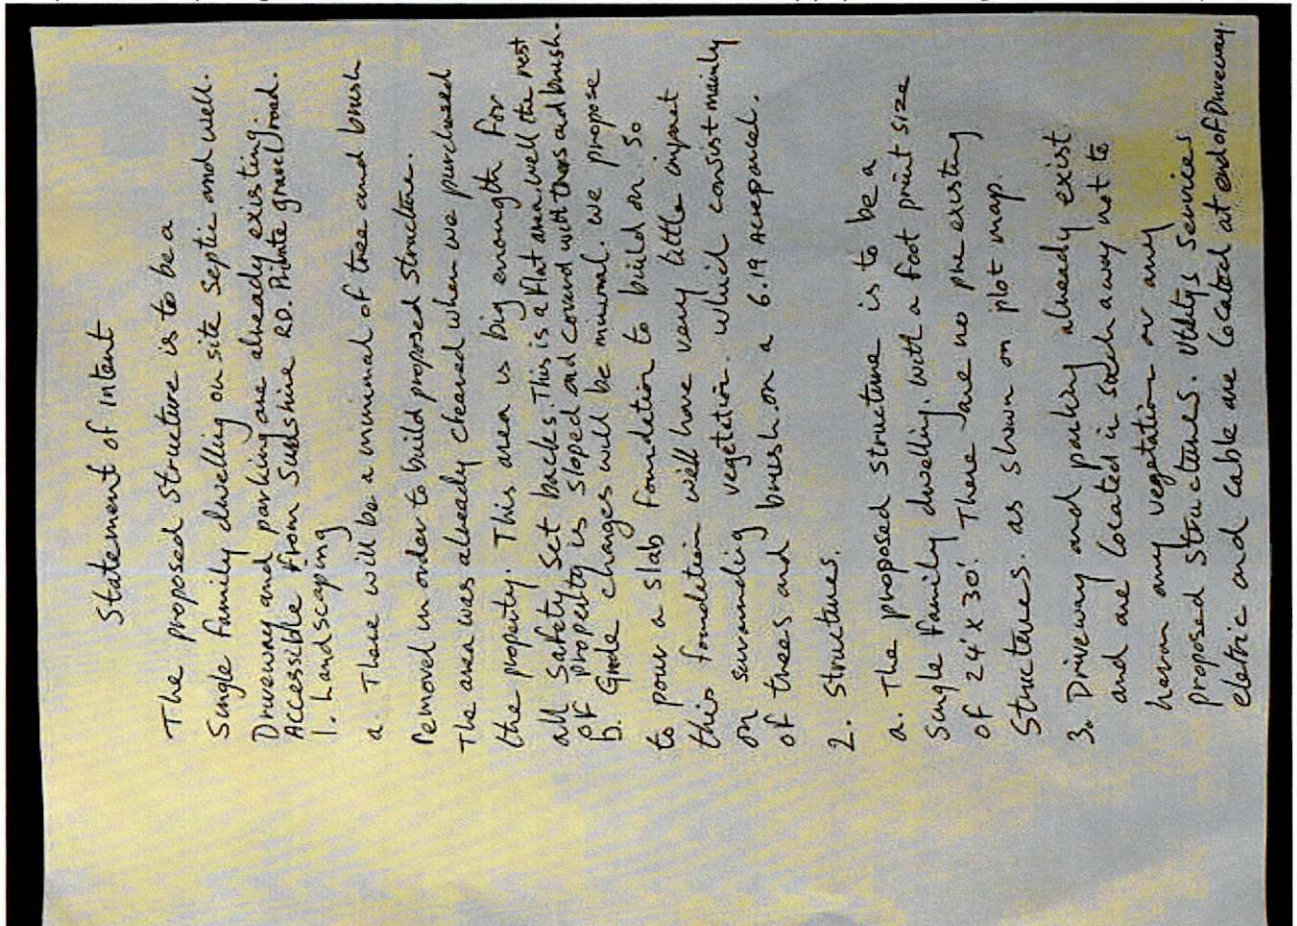 Statement of Intent
The proposed structure is to be a
Single Family dwelling on site Septic and well.
Driveway and parking are already existing.
Accessible From Sunshine RD. Private gravel road.
1. Landscaping
a. There will be a minimal of tree and brush
removel in order to build proposed structure.
The area was already cleared when we purchased
the property. This area is big enough for
all Safety Set backs. This is a flat area. well the rest
of property is sloped and covered with trees and brush.
b. Grade changes will be minimal. We propose
to pour a slab foundation to build on. So
this foundation will have very little impact
on surrounding vegetation. which consist mainly
of trees and brush. on a 6.19 Acre parcel.
2. Structures.
a. The proposed structure is to be a
single family dwelling. with a foot print size
of 24' x 30'. There are no pre existing
Structures. as shown on plot map.
3. Driveway and parking already exist
and are located in such away not to
harm any vegetation or any
proposed structures. Utilitys Services
electric and cable are located at end of Driveway.